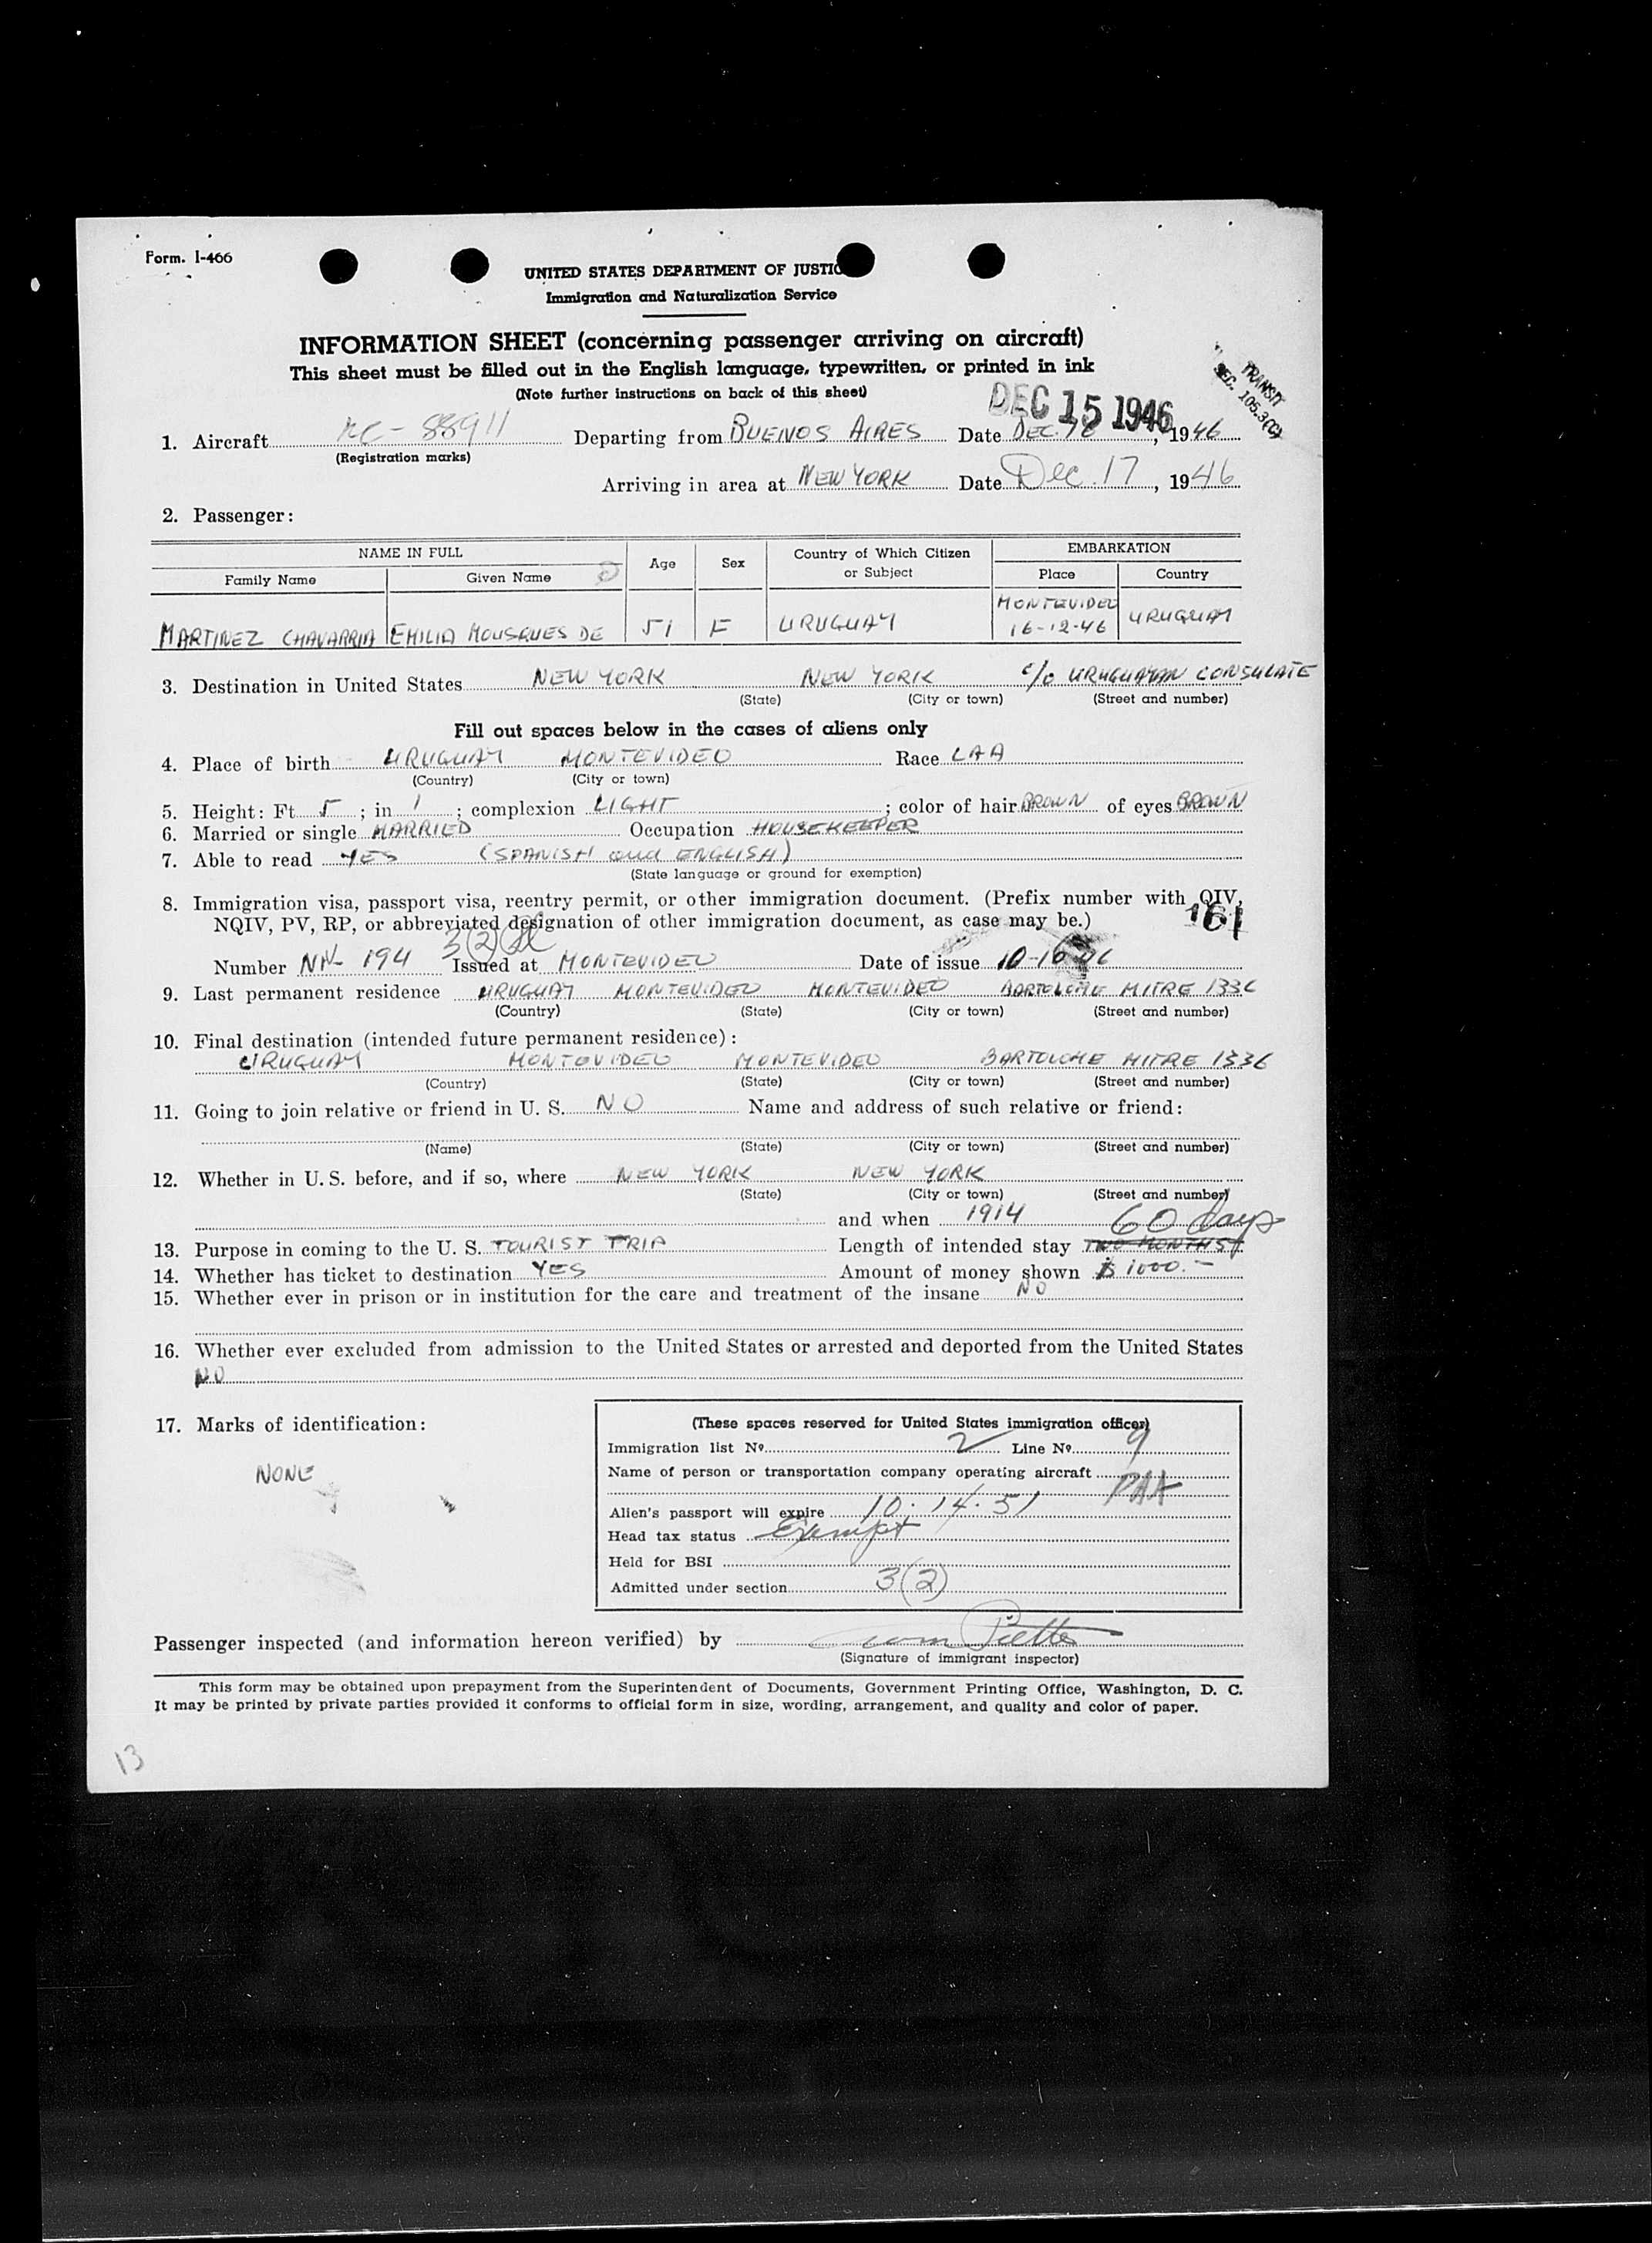 Form. I-466
UNITED STATES DEPARTMENT OF JUSTIC
Immigration and Naturalization Service
INFORMATION SHEET (concerning passenger arriving on aircraft)
This sheet must be filled out in the English language, typewritten, or printed in ink
(Note further instructions on back of this sheet)
TRANSIT
SEC. 105.3(C)
DEC 15 1946
1. Aircraft NC-88911 Departing from BUENOS AIRES Date DEC. , 1946
(Registration marks)
Arriving in area at NEW YORK Date Dec. 17, 1946
2. Passenger:
NAME IN FULL Age Sex Country of Which Citizen or Subject EMBARKATION
Family Name Given Name Place Country
MARTINEZ CHAVARRIA EMILIA MOUSQUES DE 51 F URUGUAY MONTEVIDEO 16-12-46 URUGUAY
3. Destination in United States NEW YORK NEW YORK c/o URUGUAYAN CONSULATE
(State) (City or town) (Street and number)
Fill out spaces below in the cases of aliens only
4. Place of birth URUGUAY MONTEVIDEO Race LAA
(Country) (City or town)
5. Height: Ft. 5; in 1; complexion LIGHT; color of hair BROWN of eyes BROWN
6. Married or single MARRIED Occupation HOUSEKEEPER
7. Able to read YES (SPANISH and ENGLISH)
(State language or ground for exemption)
8. Immigration visa, passport visa, reentry permit, or other immigration document. (Prefix number with QIV,
NQIV, PV, RP, or abbreviated designation of other immigration document, as case may be.) 161
3(2)
Number 194 Issued at MONTEVIDEO Date of issue 10-16-46
9. Last permanent residence URUGUAY MONTEVIDEO MONTEVIDEO BARTOLOME MITRE 1336
(Country) (State) (City or town) (Street and number)
10. Final destination (intended future permanent residence):
URUGUAY MONTEVIDEO MONTEVIDEO BARTOLOME MITRE 1336
(Country) (State) (City or town) (Street and number)
11. Going to join relative or friend in U. S. NO Name and address of such relative or friend:
(Name) (State) (City or town) (Street and number)
12. Whether in U. S. before, and if so, where NEW YORK NEW YORK
(State) (City or town) (Street and number)
and when 1914 60 days
13. Purpose in coming to the U. S. TOURIST TRIP Length of intended stay TWO MONTHS
14. Whether has ticket to destination YES Amount of money shown $ 1000.-
15. Whether ever in prison or in institution for the care and treatment of the insane NO
16. Whether ever excluded from admission to the United States or arrested and deported from the United States
NO
17. Marks of identification:
NONE
(These spaces reserved for United States immigration officer)
Immigration list Nº 2 Line Nº 9
Name of person or transportation company operating aircraft
PAA
Alien's passport will expire 10-14-51
Head tax status Exempt
Held for BSI
Admitted under section 3(2)
Passenger inspected (and information hereon verified) by
(Signature of immigrant inspector)
This form may be obtained upon prepayment from the Superintendent of Documents, Government Printing Office, Washington, D. C.
It may be printed by private parties provided it conforms to official form in size, wording, arrangement, and quality and color of paper.
13